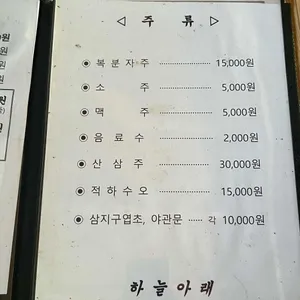 ◁ 주 류 ▷
◉ 복 분 자 주 ················ 15,000원
◉ 소 주 ················ 5,000원
◉ 맥 주 ················ 5,000원
◉ 음 료 수 ················ 2,000원
◉ 산 삼 주 ················ 30,000원
◉ 적 하 수 오 ················ 15,000원
◉ 삼지구엽초, 야관문 ····· 각 10,000원
하 늘 아 래